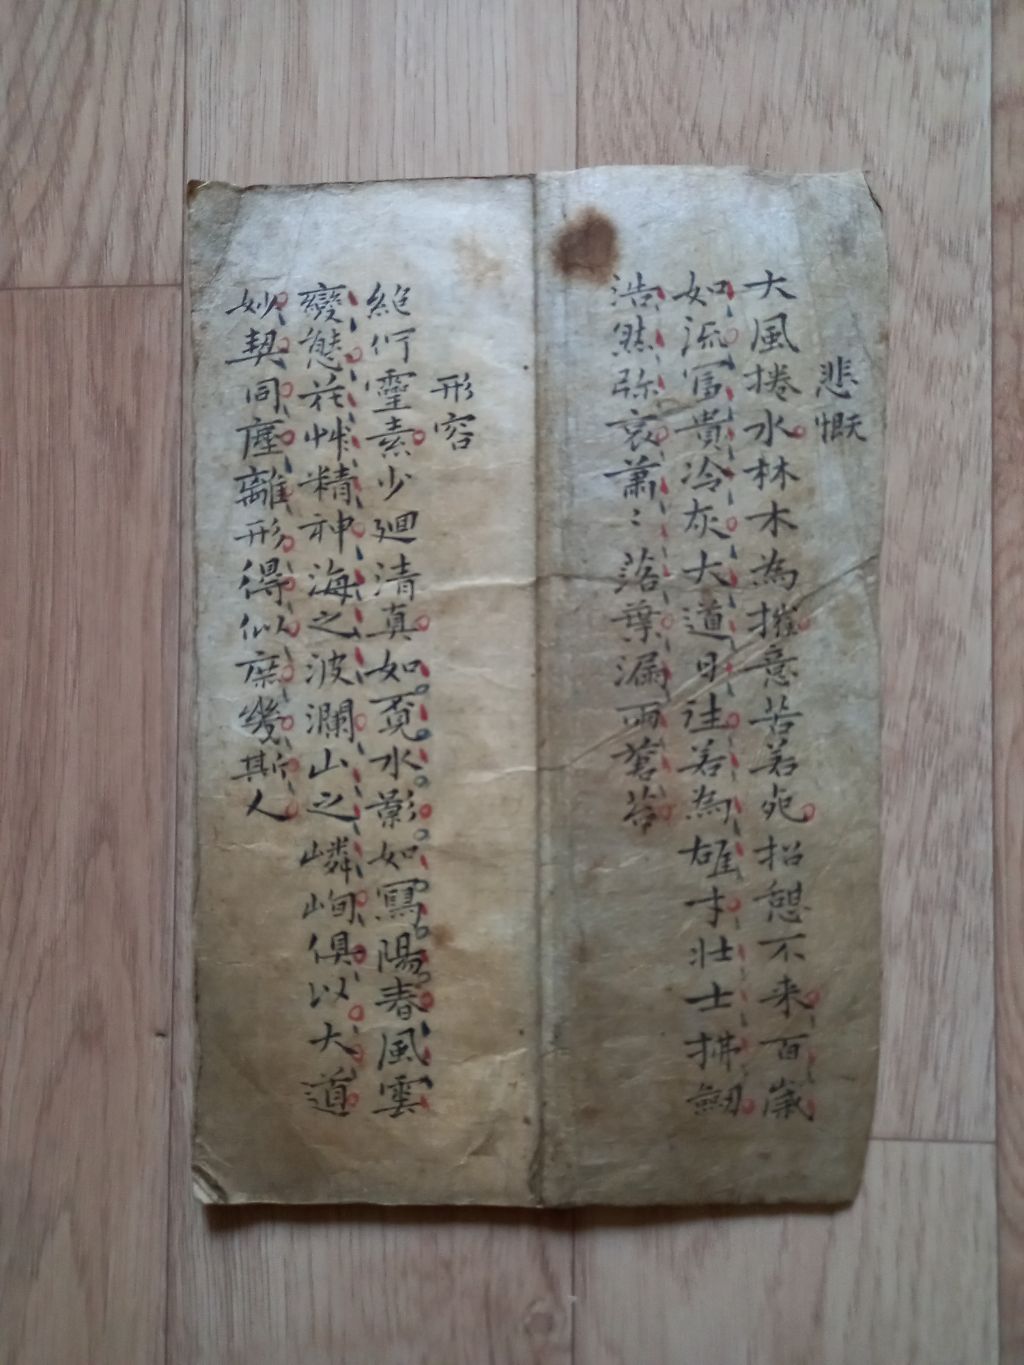 悲慨
大風捲水林木為摧意苦若宛招憩不来百歲
如流富貴冷灰大道日往若為雄才壮士拂劒
浩然弥哀蕭〻落葉漏雨蒼苔
形容
絶佇靈素少廻清真如覓水影如寫陽春風雲
變態花草精神海之波瀾山之嶙峋俱以大道
妙契同塵離形得似庶幾斯人